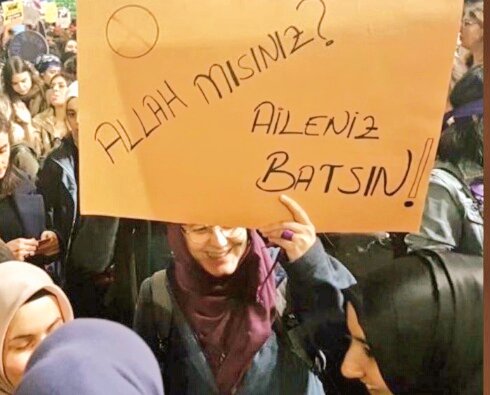 ALLAH MISINIZ?
AİLENİZ
BATSIN!